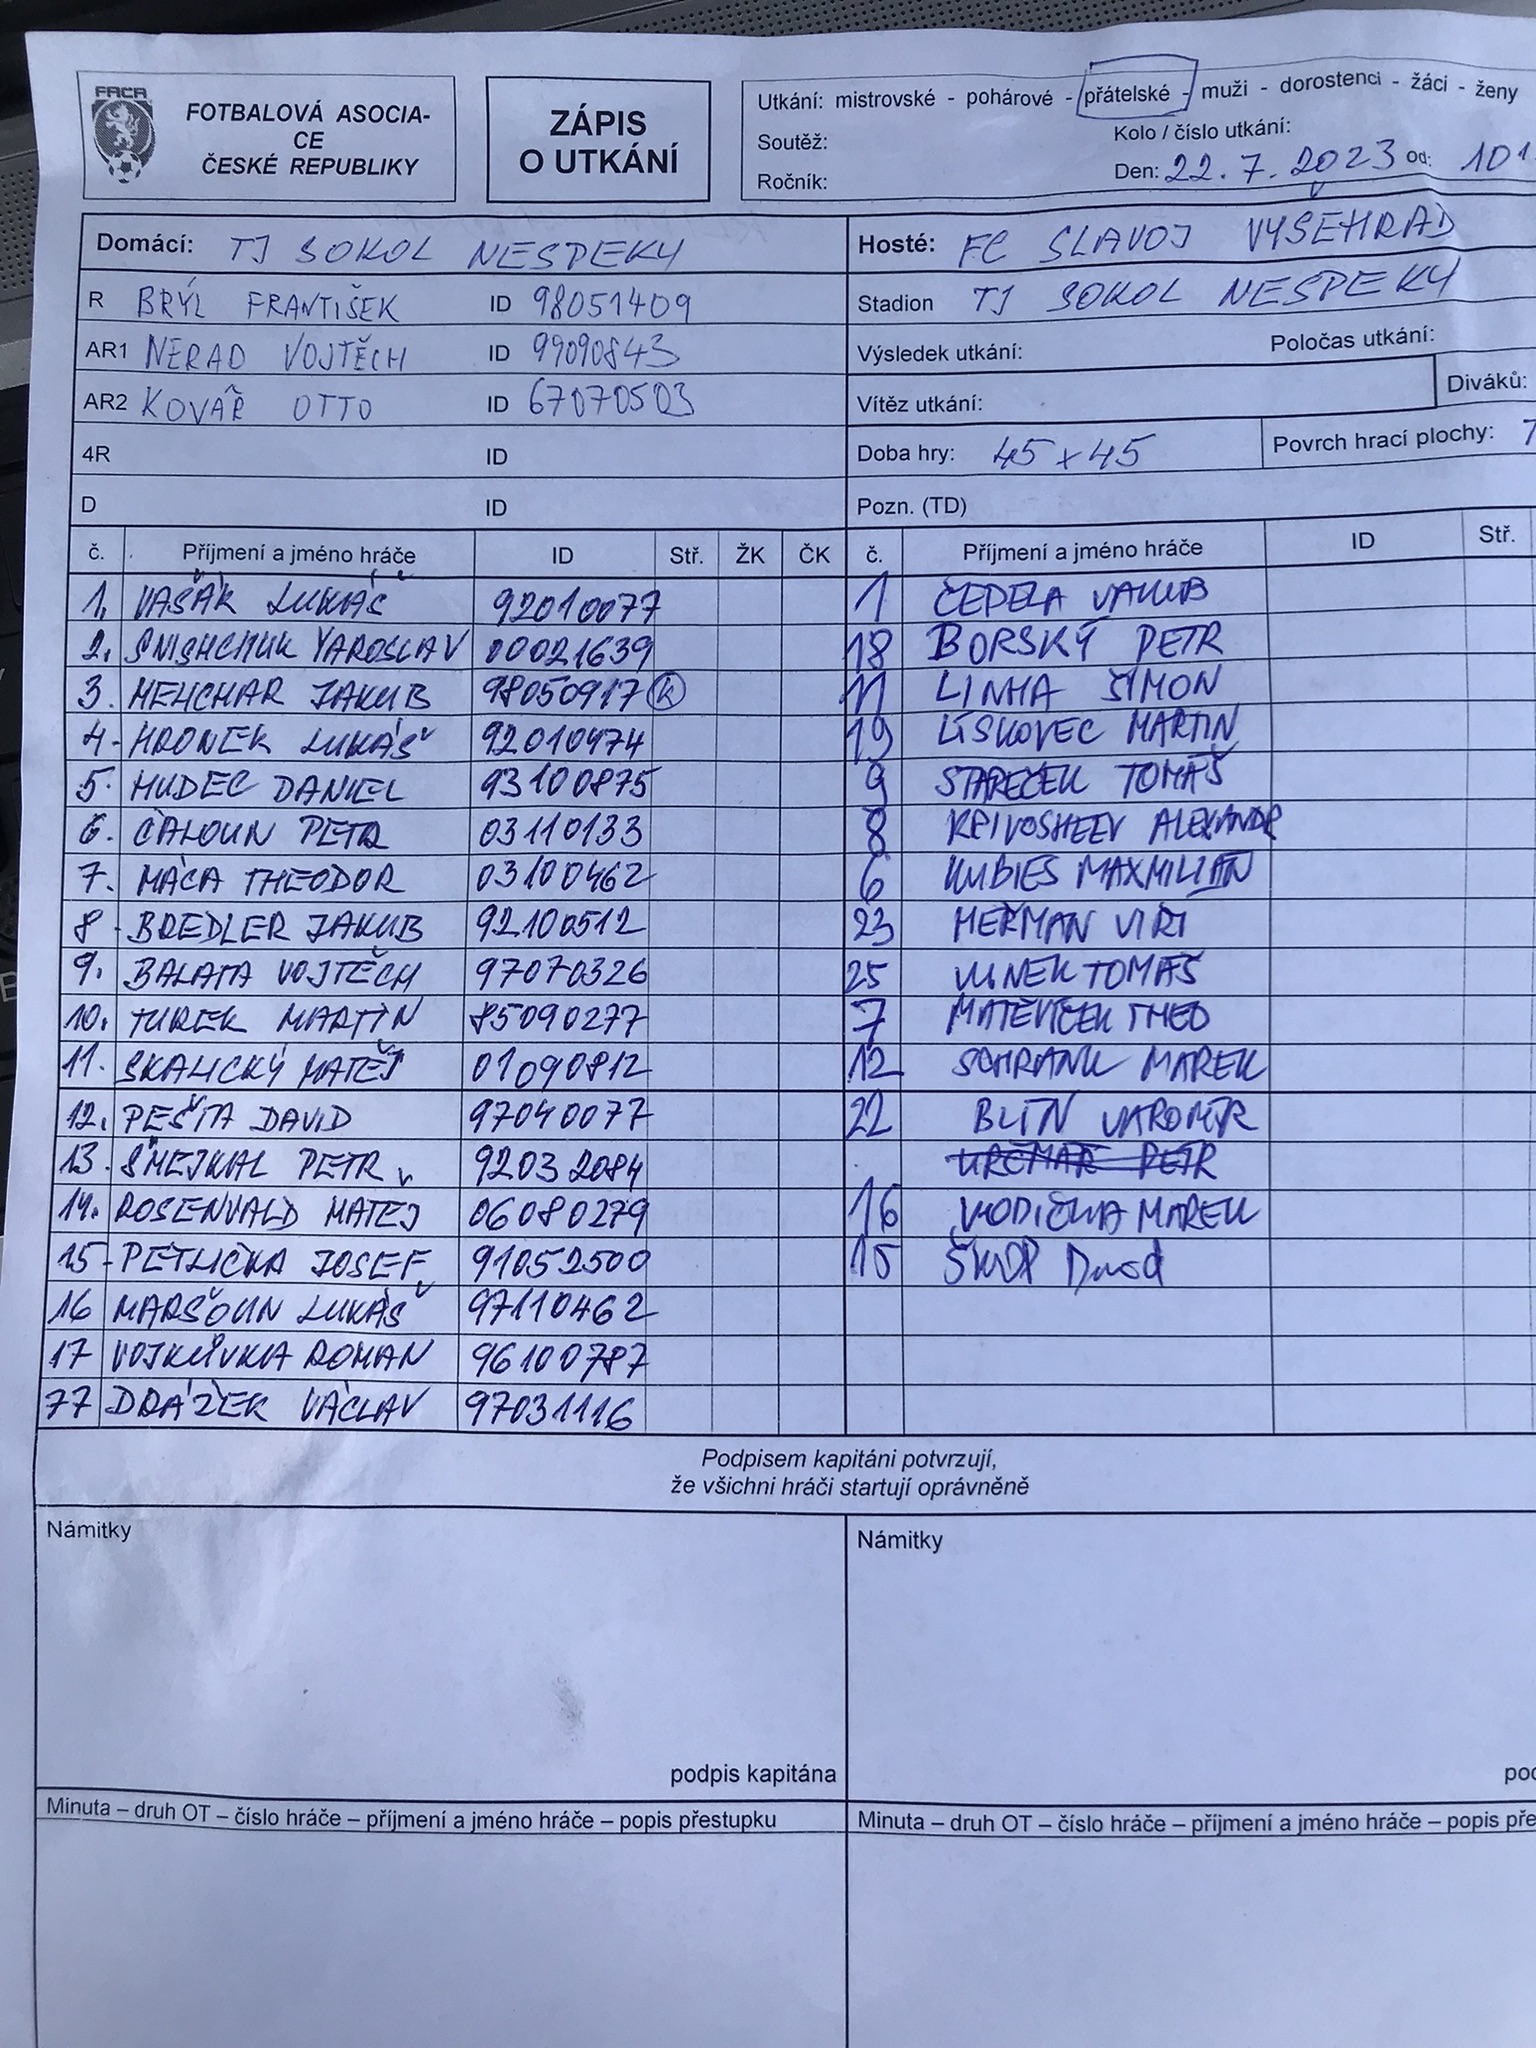 FACR
FOTBALOVÁ ASOCIA-
CE
ČESKÉ REPUBLIKY
ZÁPIS
O UTKÁNÍ
Utkání: mistrovské - pohárové - přátelské - muži - dorostenci - žáci - ženy
Soutěž: Kolo / číslo utkání:
Ročník: Den: 22.7.2023 od: 10
Domácí: TJ SOKOL NESPEKY
Hosté: FC SLAVOJ VYŠEHRAD
R BRÝL FRANTIŠEK ID 98051409
Stadion TJ SOKOL NESPEKY
AR1 NERAD VOJTĚCH ID 99090843
Výsledek utkání: Poločas utkání:
AR2 KOVÁŘ OTTO ID 67070503
Vítěz utkání: Diváků:
4R ID
Doba hry: 45 x 45 Povrch hrací plochy:
D ID
Pozn. (TD)
č. Příjmení a jméno hráče ID Stř. ŽK ČK č. Příjmení a jméno hráče ID Stř.
1. VAŠÁK LUKÁŠ 92010077 1 ČEPELA JAKUB
2. SNISHCHUK YAROSLAV 00021639 18 BORSKÝ PETR
3. MELICHAR JAKUB 98050917 K 11 LINHA ŠIMON
4. HRONEK LUKÁŠ 92010474 19 LÍSKOVEC MARTIN
5. HUDEC DANIEL 93100875 9 STAREČEK TOMÁŠ
6. ČALOUN PETR 03110133 8 KRIVOSHEEV ALEXANDR
7. MÁCA THEODOR 03100462 6 KUBIES MAXMILIÁN
8. BREDLER JAKUB 92100512 23 HEŘMAN JIŘÍ
9. BALATA VOJTĚCH 97070326 25 TOMÁŠ
10. TUREK MARTIN 85090277 7 MATĚVÍČEK THEO
11. SKALICKÝ MATĚJ 01090812 12 SCHRANK MAREK
12. PEŠTA DAVID 97040077 22 JAROMÍR
13. ŠMEJKAL PETR 92032084 PETR
14. ROSENVALD MATĚJ 06080279 16 VODIČKA MAREK
15. PETLIČKA JOSEF 91052500 15 ŠKOP David
16 MARŠOUN LUKÁŠ 97110462
17 VOJKŮVKA ROMAN 96100787
77 DRÁŽEK VÁCLAV 97031116
Podpisem kapitáni potvrzují,
že všichni hráči startují oprávněně
Námitky Námitky
podpis kapitána
Minuta – druh OT – číslo hráče – příjmení a jméno hráče – popis přestupku
Minuta – druh OT – číslo hráče – příjmení a jméno hráče – popis pře